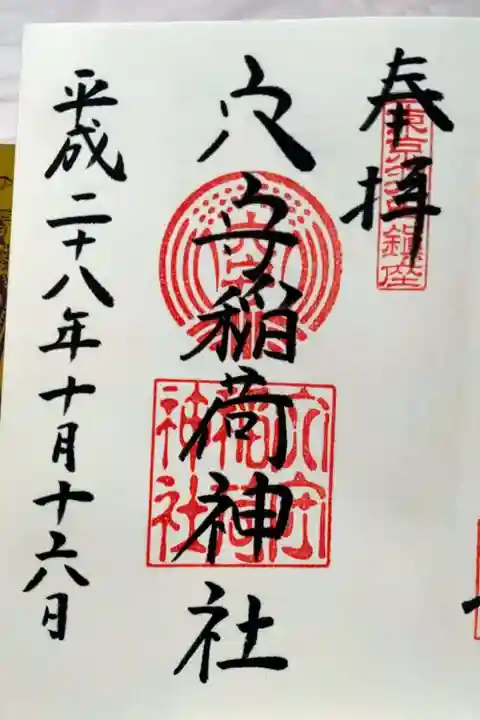 奉拝
穴守稲荷神社
平成二十八年十月十六日
穴守
稲荷
神社